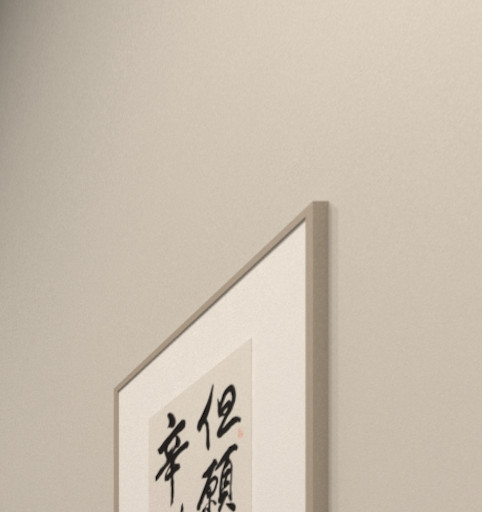 但願
辛